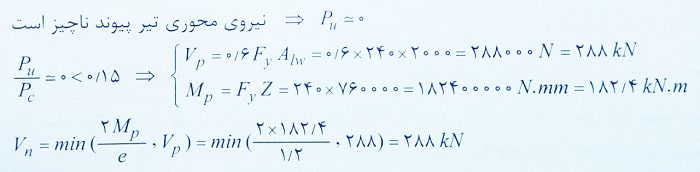 نیروی محوری تیر پیوند ناچیز است ⇒ P_u ≃ ۰
P_u/P_c ≃ ۰ < ۰/۱۵ ⇒ { V_p = ۰/۶ F_y A_lw = ۰/۶ × ۲۴۰ × ۲۰۰۰ = ۲۸۸۰۰۰ N = ۲۸۸ kN
M_p = F_y Z = ۲۴۰ × ۷۶۰۰۰۰ = ۱۸۲۴۰۰۰۰۰ N.mm = ۱۸۲/۴ kN.m
V_n = min(۲M_p/e , V_p) = min(۲×۱۸۲/۴ / ۱/۲ , ۲۸۸) = ۲۸۸ kN